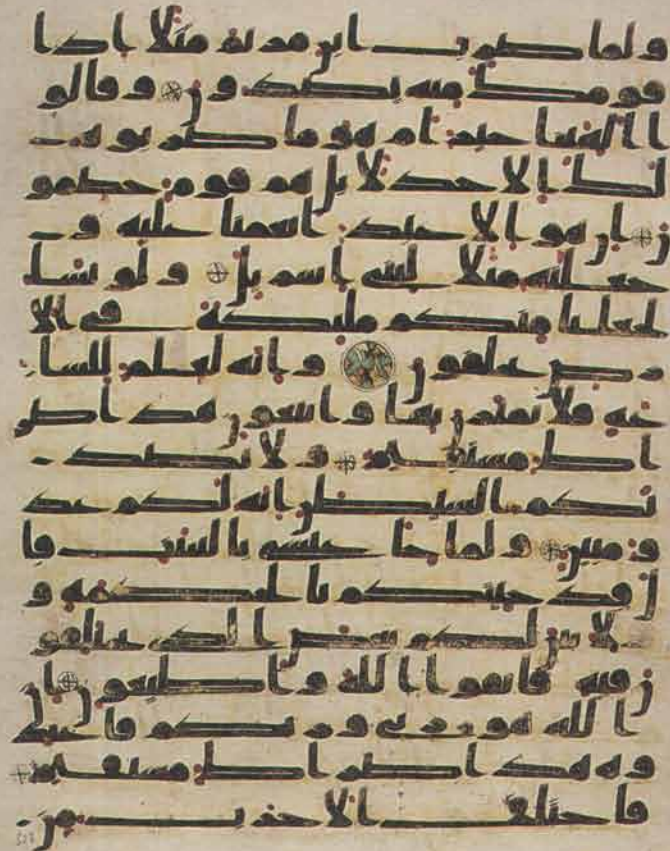 ولما ضرب ابن مريم مثلا اذا
قومك منه يصدون وقالو
ا الهتنا خير ام هو ما ضربوه
لك الا جدلا بل هم قوم خصمو
ن ان هو الا عبد انعمنا عليه و
جعلنه مثلا لبني اسريل ولو نشا
لجعلنا منكم مليكة في الا
رض يخلفون وانه لعلم للسا
عة فلا تمترن بها واتبعون هذا صر
اط مستقيم ولا يصد
نكم الشيطن انه لكم عد
و مبين ولما جا عيسى بالبينت قا
ل قد جيتكم بالحكمة و
لابين لكم بعض الذي تختلفو
ن فيه فاتقوا الله واطيعون ان
الله هو ربي وربكم فاعبد
وه هذا صراط مستقيم
فاختلف الاحزب من